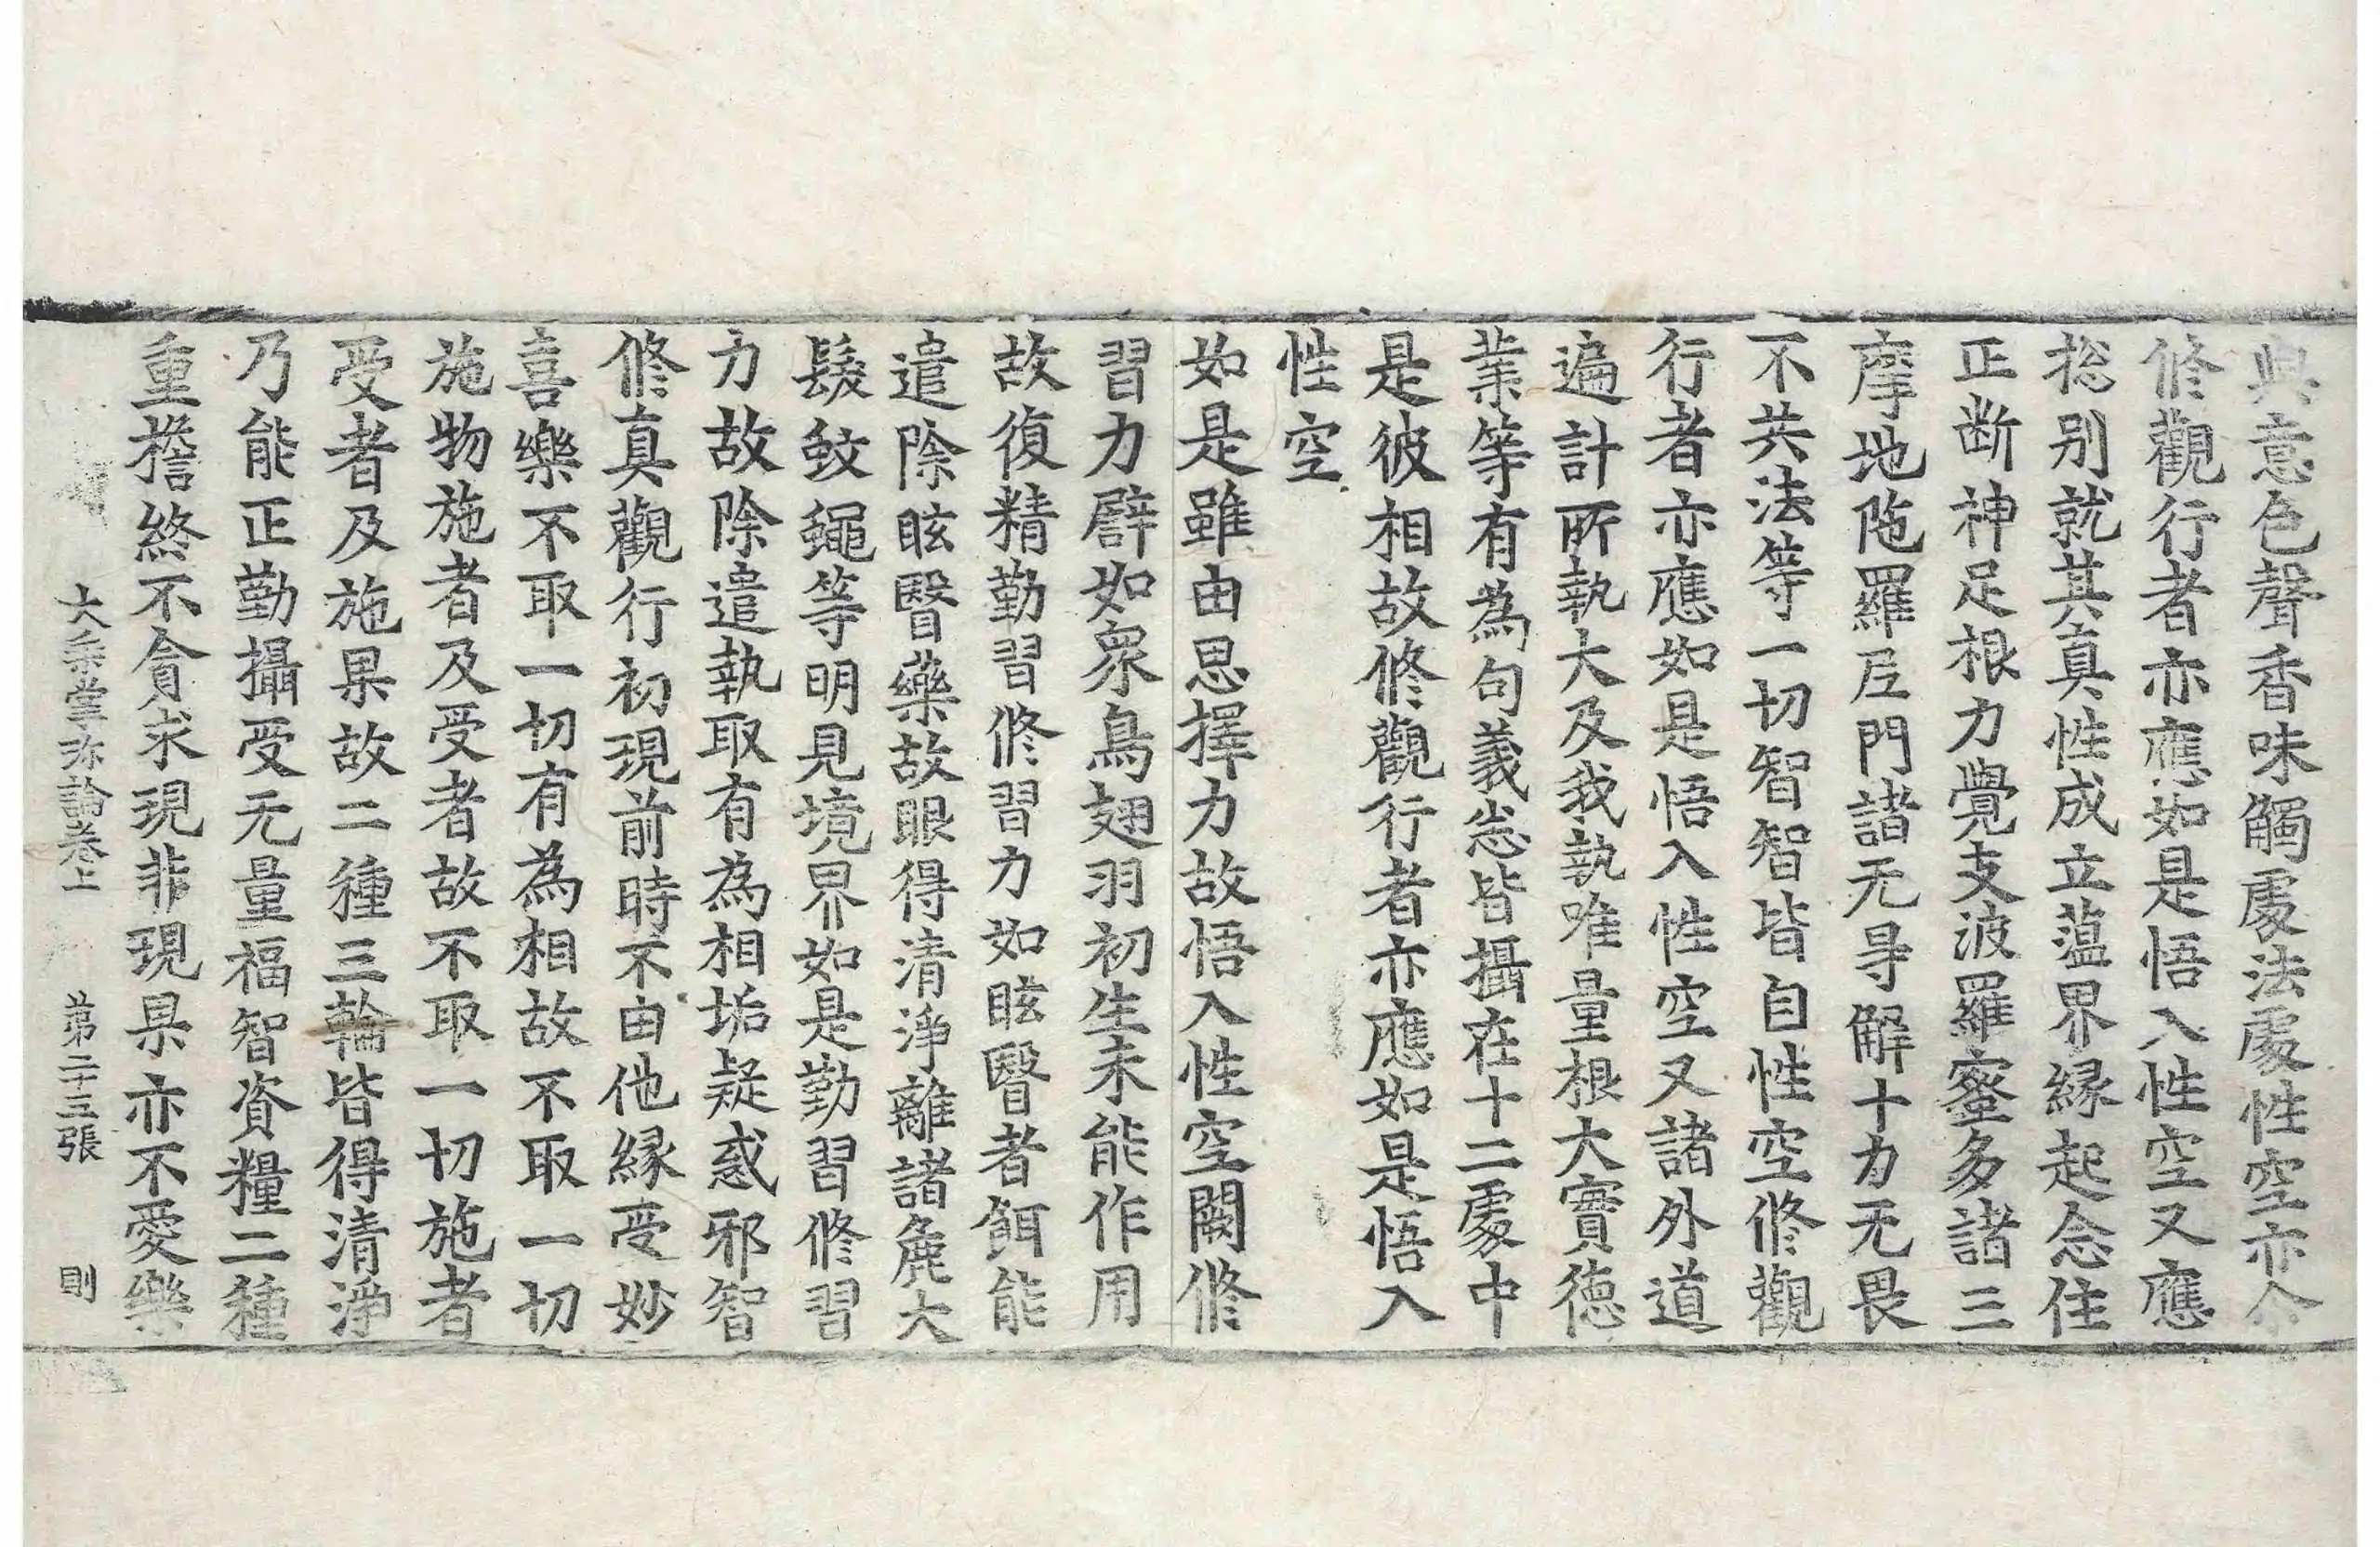 與意色聲香味觸處法處性空亦尒
修觀行者亦應如是悟入性空又應
捴别就其真性成立蕰界緣起念住
正断神足根力覺支波羅蜜多諸三
摩地陁羅尼門諸无㝵解十力无畏
不共法等一切智智皆自性空修觀
行者亦應如是悟入性空又諸外道
遍計所執大及我執唯量根大實德
業等有為句義悉皆攝在十二處中
是彼相故修觀行者亦應如是悟入
性空
如是雖由思擇力故悟入性空闕修
習力譬如眾鳥翅羽初生未能作用
故復精勤習修習力如眩瞖者餌能
遣除眩瞖藥故眼得清淨離諸麁大
髮蚊蠅等明見境界如是勤習修習
力故除遣執取有為相垢疑惑邪智
修真觀行初現前時不由他緣受妙
喜樂不取一切有為相故不取一切
施物施者及受者故不取一切施者
受者及施果故二種三輪皆得清淨
乃能正勤攝受无量福智資糧二種
重擔終不貪求現非現果亦不愛樂
大乗掌珎論卷上 第二十三張 則